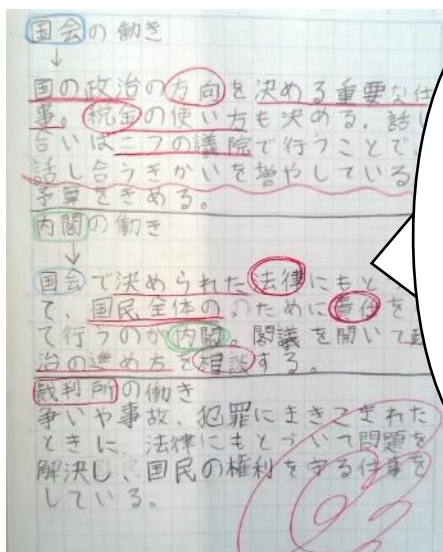 国会の働き
↓
国の政治の方向を決める重要な仕
事。税金の使い方も決める。話し
合いは二つの議院で行うことで、
話し合うきかいを増やしている
予算をきめる。
内閣の働き
↓
国会で決められた法律にもと
て、国民全体の のために責任を
て行うのが内閣。閣議を開いて政
治の進め方を相談する。
裁判所の働き
争いや事故、犯罪にまきこまれた
ときに、法律にもとづいて問題を
解決し、国民の権利を守る仕事を
している。